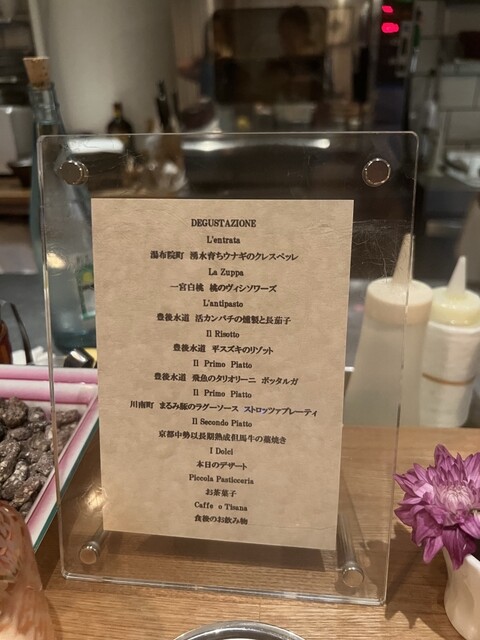 DEGUSTAZIONE
L'entrata
湯布院町 湧水育ちウナギのクレスペッレ
La Zuppa
一宮白桃 桃のヴィシソワーズ
L'antipasto
豊後水道 活カンパチの燻製と長茄子
Il Risotto
豊後水道 平スズキのリゾット
Il Primo Piatto
豊後水道 飛魚のタリオリーニ ボッタルガ
Il Primo Piatto
川南町 まるみ豚のラグーソース ストロッツァプレーティ
Il Secondo Piatto
京都中勢以長期熟成但馬牛の藁焼き
I Dolci
本日のデザート
Piccola Pasticceria
お茶菓子
Caffe o Tisana
食後のお飲み物